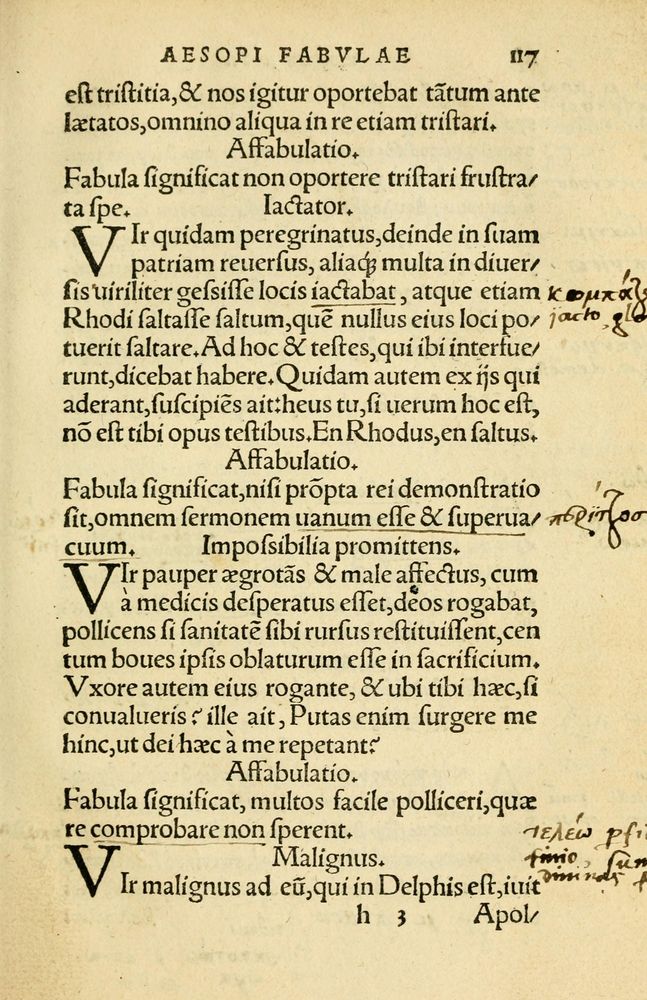 AESOPI FABVLAE 117
est tristitia,& nos igitur oportebat tãtum ante
lætatos,omnino aliqua in re etiam tristari.
Affabulatio.
Fabula significat non oportere tristari frustra/
ta spe. Iactator.
VIr quidam peregrinatus,deinde in suam
patriam reuersus, aliaq; multa in diuer/
sis uiriliter gessisse locis iactabat, atque etiam
Rhodi saltasse saltum,quẽ nullus eius loci po/
tuerit saltare.Ad hoc & testes,qui ibi interfue/
runt,dicebat habere.Quidam autem ex ijs qui
aderant,suscipiẽs ait:heus tu,si uerum hoc est,
nõ est tibi opus testibus.En Rhodus,en saltus.
Affabulatio.
Fabula significat,nisi prõpta rei demonstratio
sit,omnem sermonem uanum esse & superua/
cuum. Impossibilia promittens.
VIr pauper ægrotãs & male affectus, cum
à medicis desperatus esset,deos rogabat,
pollicens si sanitatẽ sibi rursus restituissent,cen
tum boues ipsis oblaturum esse in sacrificium.
Vxore autem eius rogante, & ubi tibi hæc,si
conualueris? ille ait, Putas enim surgere me
hinc,ut dei hæc à me repetant?
Affabulatio.
Fabula significat, multos facile polliceri,quæ
re comprobare non sperent.
Malignus.
VIr malignus ad eũ,qui in Delphis est,iuit
h 3 Apol/
iacto
τελέω
finio